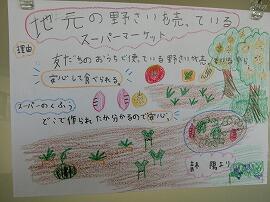 地元の野さいも売っている
スーパーマーケット
理由
友だちのおうちで使っている野さいが売
安心して食べられる
スーパーのくふう
どこで作られたか分かるので安心。
より